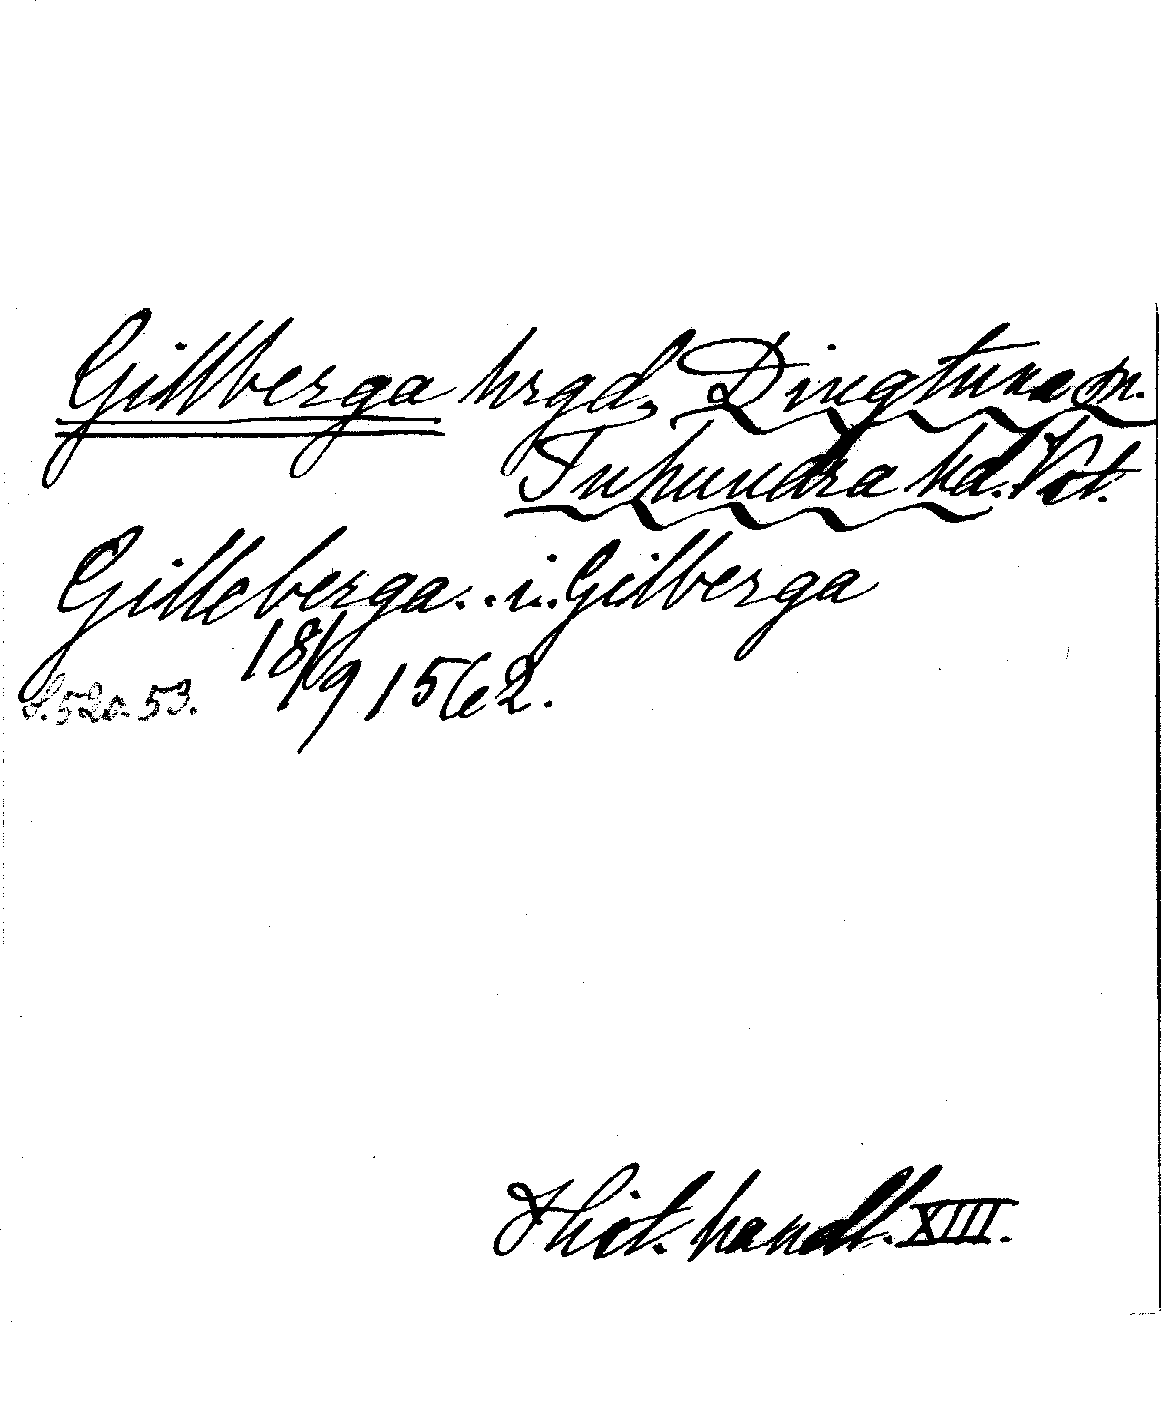 Gillberga hrgd, Dingtuna sn.
Tuhundra hd. Vstm.
Gilleberga. . i. Gilberga
18/9 1562.
S. 52 o. 53.
Hist. handl. XIII.